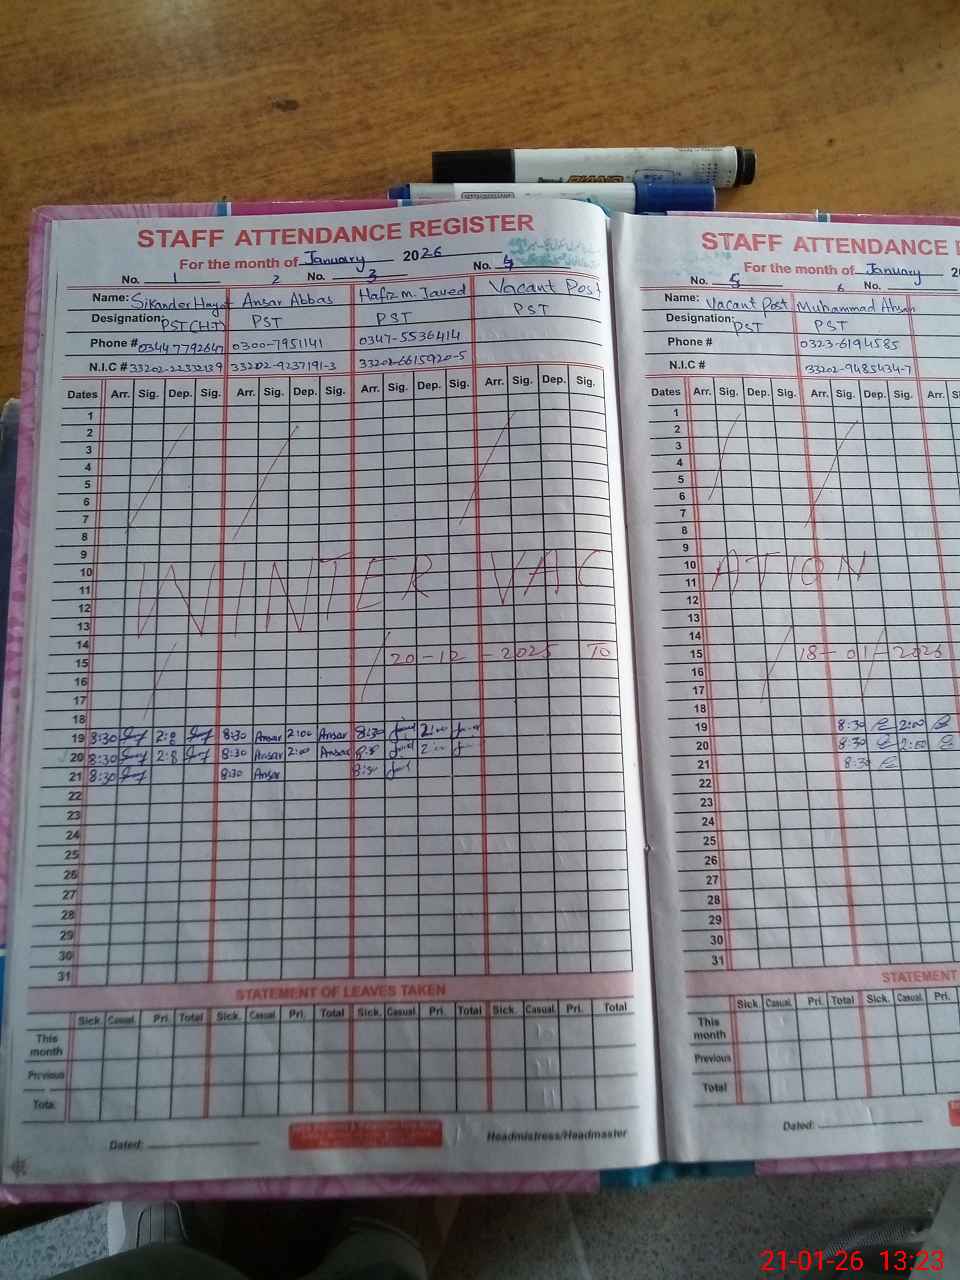 PIANO
STAFF ATTENDANCE REGISTER
For the month of January 2026
No. 1 2 No. 3 No. 4
Name: Sikander Hayat Ansar Abbas Hafiz M. Javed Vacant Post
Designation: PST (HT) PST PST PST
Phone # 03447792647 0300-7951141 0347-5536414
N.I.C # 33202-9237191-3 33202-6615920-5
Dates Arr. Sig. Dep. Sig. Arr. Sig. Dep. Sig. Arr. Sig. Dep. Sig. Arr. Sig. Dep. Sig.
1
2
3
4
5
6
7
8
9
10
11
12
13
WINTER VAC
14
15 20-12-2025 TO
16
17
18
19 8:30 2:0 8:30 Ansar 2:00 Ansar 8:30 2:00
20 8:30 2:0 8:30 Ansar 2:00 Ansar 8:30 2:00
21 8:30 8:30 Ansar 8:30
22
23
24
25
26
27
28
29
30
31
STATEMENT OF LEAVES TAKEN
Sick. Casual. Pri. Total Sick. Casual. Pri. Total Sick. Casual. Pri. Total Sick. Casual. Pri. Total
This month
Previous
Total
Dated:
Headmistress/Headmaster
STAFF ATTENDANCE
For the month of January
No. 5 6 No.
Name: Vacant Post Muhammad Ahsan
Designation: PST PST
Phone # 0323-6194585
N.I.C # 33202-9485434-7
Dates Arr. Sig. Dep. Sig. Arr. Sig. Dep. Sig. Arr.
1
2
3
4
5
6
7
8
9
10
11
12
13
ATION
14
15 18-01-2026
16
17
18
19 8:30 2:00
20 8:30 2:00
21 8:30
22
23
24
25
26
27
28
29
30
31
STATEMENT
Sick. Casual. Pri. Total Sick. Casual. Pri.
This month
Previous
Total
Dated:
21-01-26 13:23